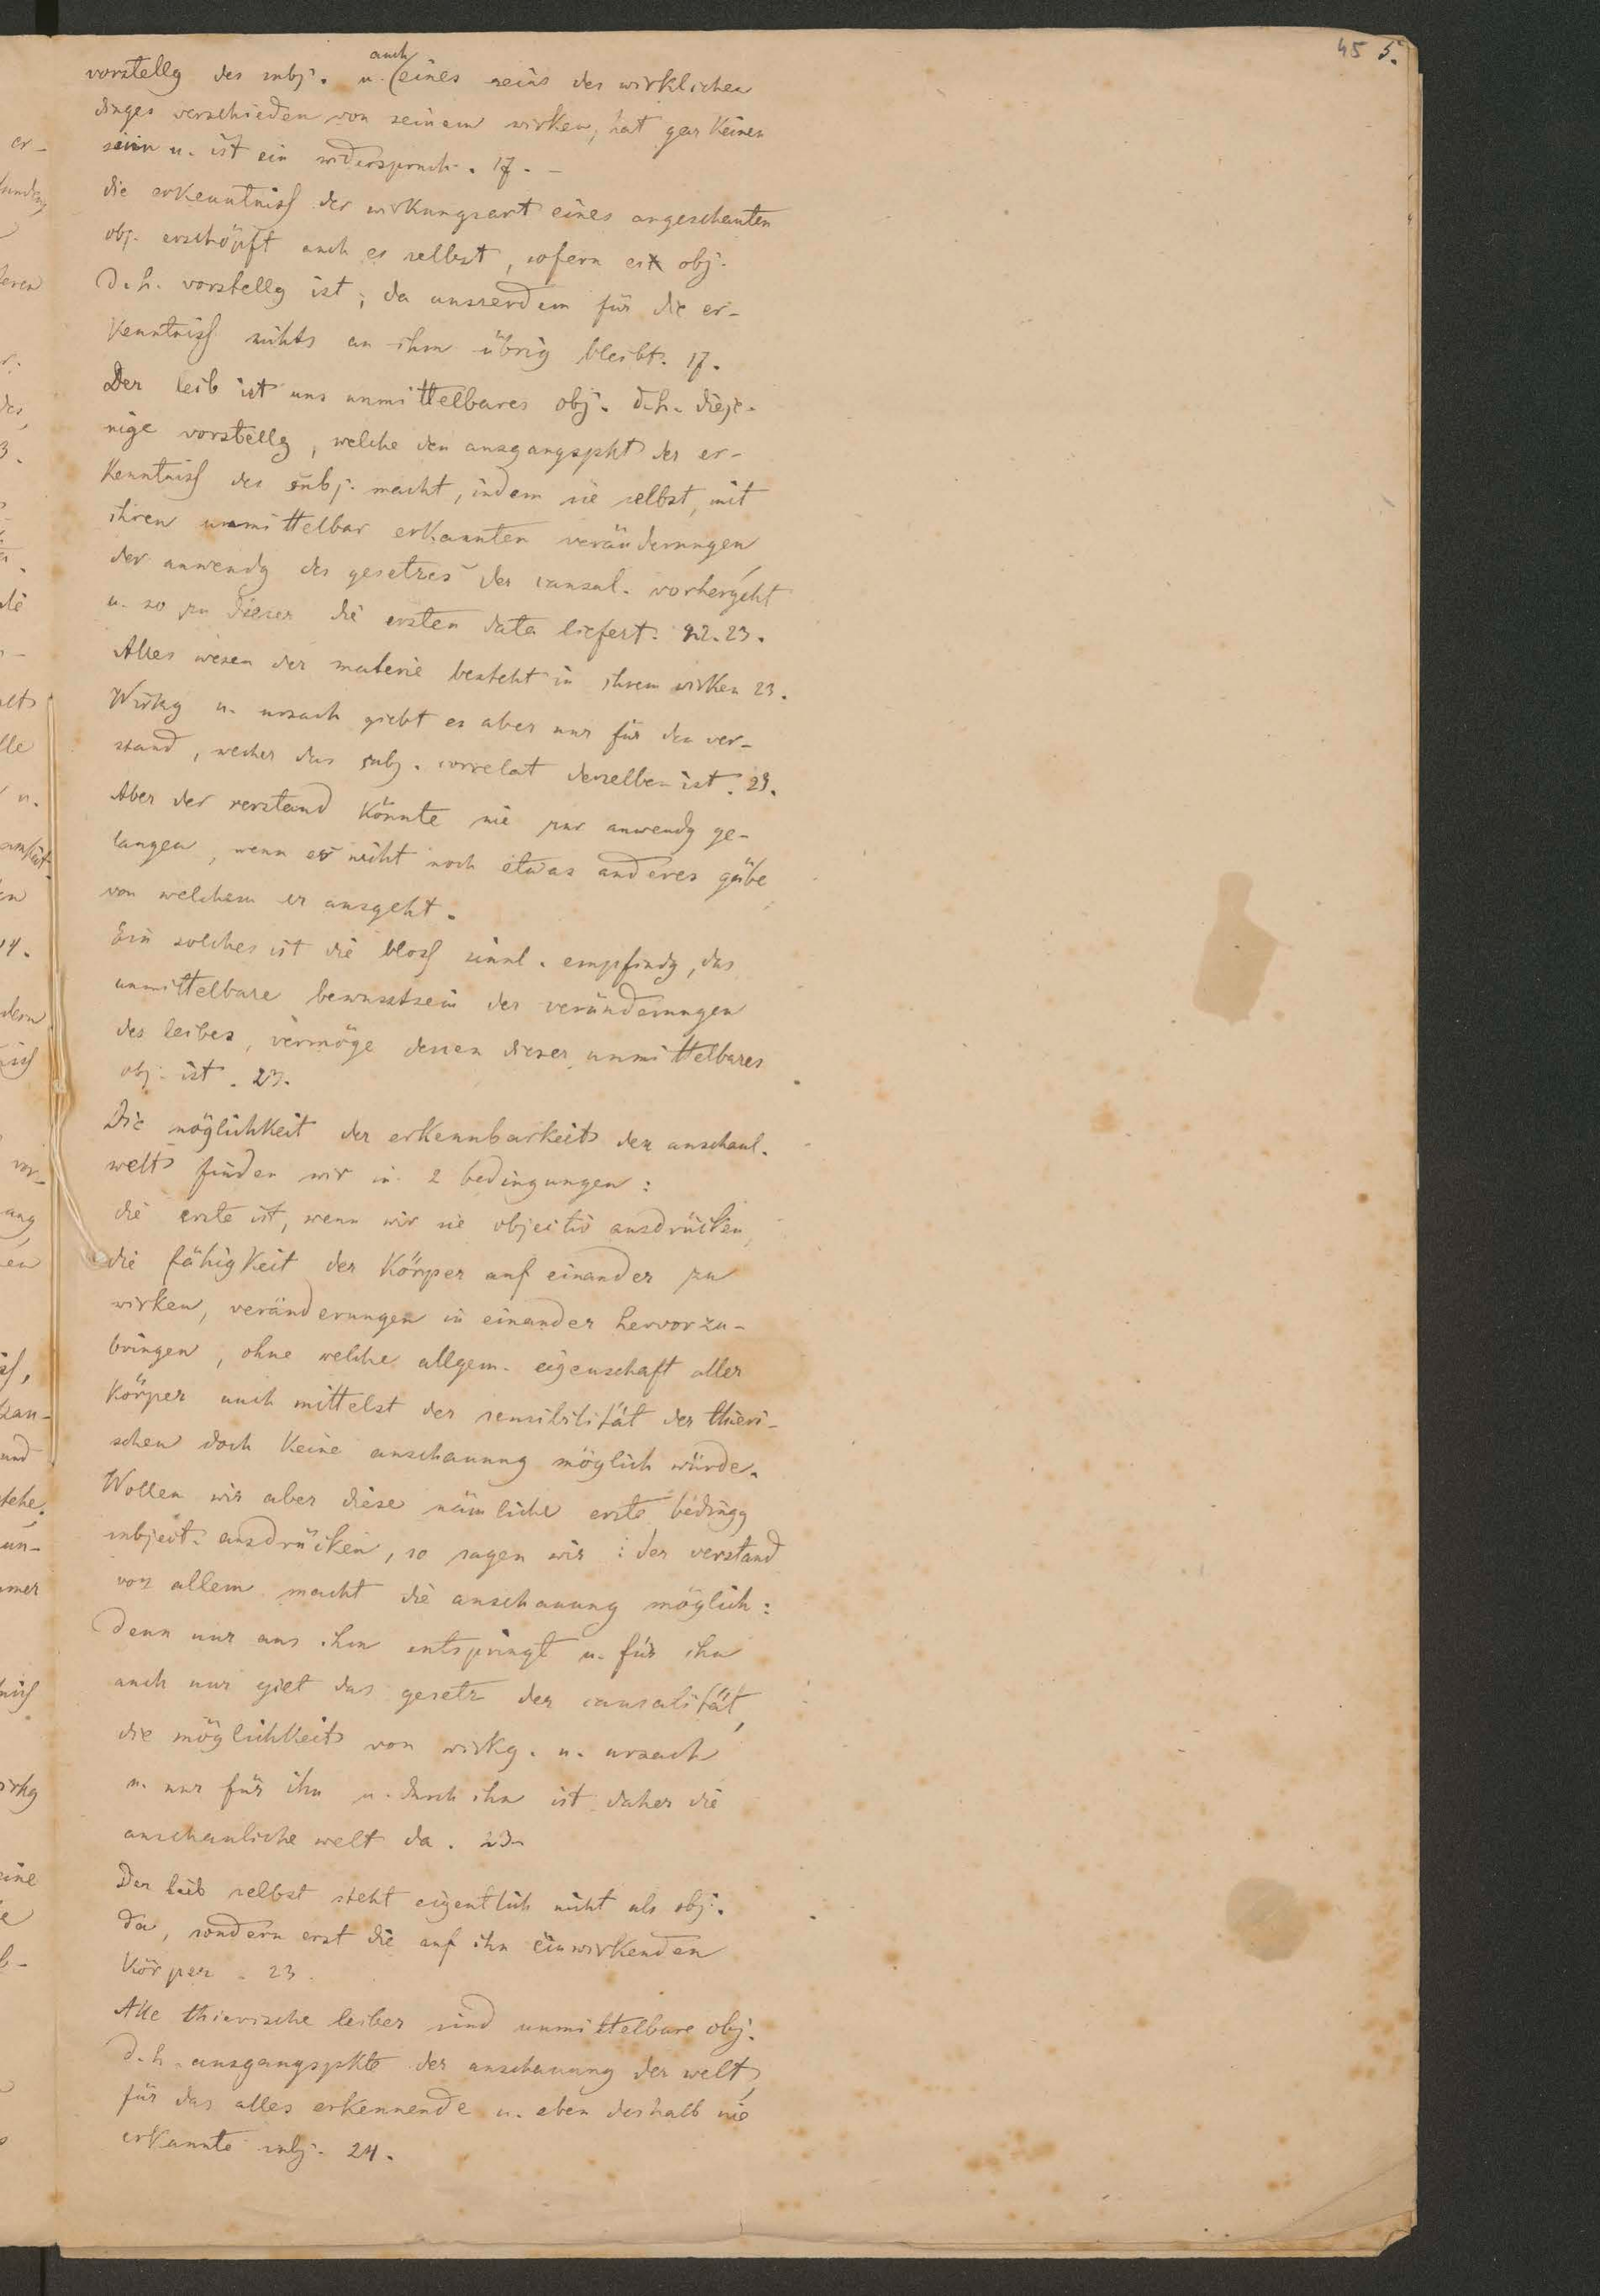 45 5.
auch
vorstellg des subj. u. (eines seins des wirklichen
dinges verschieden von seinem wirken, hat gar keinen
sinn u. ist ein widerspruch. 17. –
die erkenntniß der wirkungsart eines angeschauten
obj. erschöpft auch es selbst, sofern es obj.
d. h. vorstellg ist, da ausserdem für die er-
kenntniß nichts an ihm übrig bleibt. 17.
Der leib ist uns unmittelbares obj. d. h. dieje-
nige vorstellg, welche den ausgangspkt der er-
kenntniß des subj. macht, indem sie selbst, mit
ihren unmittelbar erkannten veränderungen,
der anwendg des gesetzes der causal. vorhergeht
u. so zu dieser die ersten data liefert. 22. 23.
Alles wesen der materie besteht in ihrem wirken 23.
Wirkg u. ursach giebt es aber nur für den ver-
stand, welcher das subj. correlat derselben ist. 23.
Aber der verstand könnte nie zur anwendg ge-
langen, wenn es nicht noch etwas anderes gäbe,
von welchem er ausgeht.
Ein solches ist die bloß sinnl. empfindg, das
unmittelbare bewusstsein der veränderungen
des leibes, vermöge dessen dieser unmittelbares
obj. ist. 23.
Die möglichkeit der erkennbarkeit der anschaul.
welt finden wir in 2 bedingungen:
die erste ist, wenn wir sie objectiv ausdrücken,
die fähigkeit der körper auf einander zu
wirken, veränderungen in einander hervorzu-
bringen, ohne welche allgem. eigenschaft aller
körper auch mittelst der sensibilität der thieri-
schen doch keine anschauung möglich würde.
Wollen wir aber diese nämliche erste bedingg
subject. ausdrücken, so sagen wir: der verstand
vor allem macht die anschauung möglich:
denn nur aus ihm entspringt u. für ihn
auch nur gilt das gesetz der causalität,
die möglichkeit von wirkg. u. ursach
u. nur für ihn u. durch ihn ist daher die
anschauliche welt da. 23.
Der leib selbst steht eigentlich nicht als obj.
da, sondern erst die auf ihn einwirkenden
körper. 23.
Alle thierische leiber sind unmittelbare obj.
d. h. ausgangspkte der anschauung der welt,
für das alles erkennende u. eben deshalb nie
erkannte subj. 24.